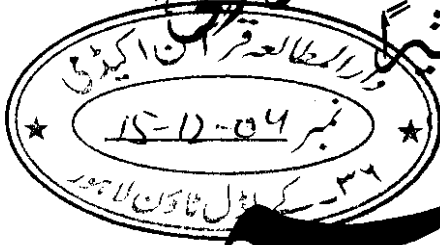 دارالمطالعہ قرآن اکیڈمی
نمبر 15-12-04
۳۶۔ کے ماڈل ٹاؤن لاہور